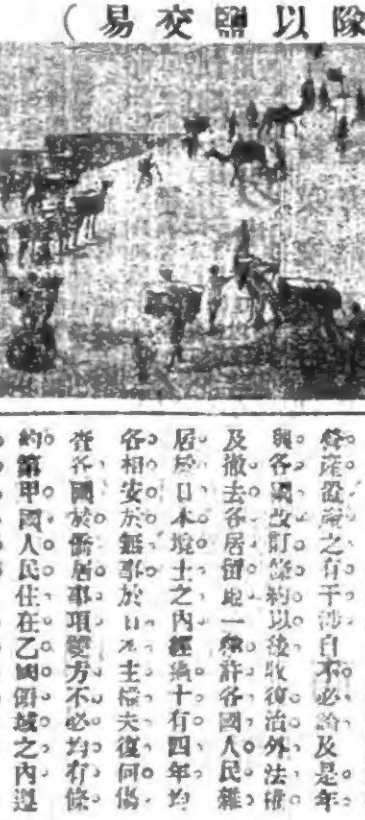 （易交鹽以除
營產證論之有干涉自不必論及是年
與各國改訂條約以後收復治外法權
及撤去各居留地一律許各國人民雜
居於日本境土之內經過十有四年均
各相安於無事於日本主權夫復何傷
查各國於僑居事項雙方不必均有條
約第甲國人民住在乙國領域之內遵